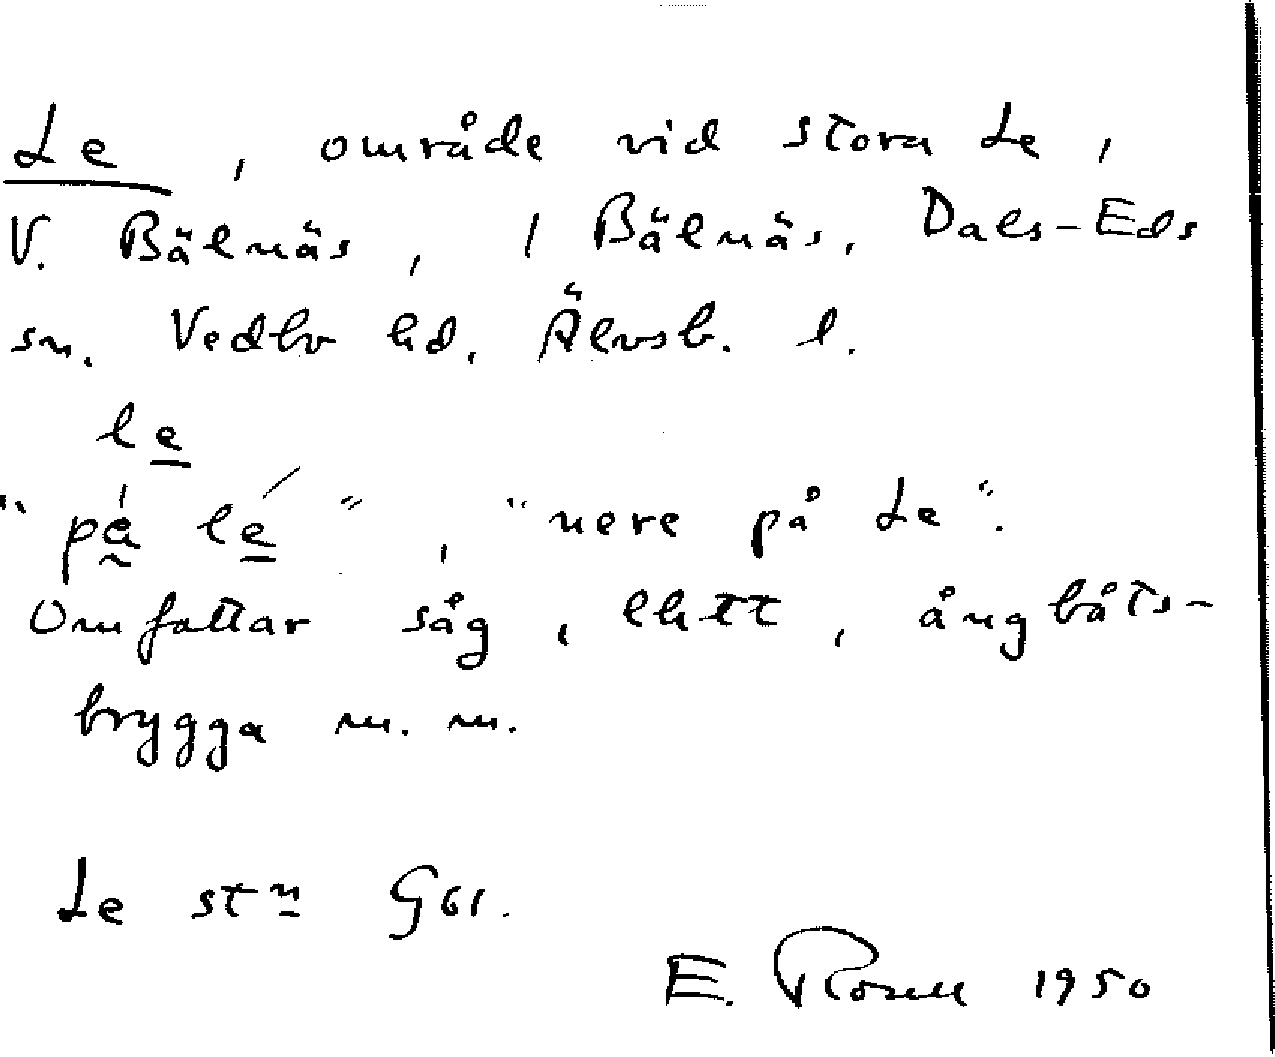 Le, område vid stora Le,
V. Bälnäs, 1 Bälnäs, Dals-Eds
sn. Vedbo hd. Älvsb. l.
le
"på lé", "nere på Le".
Omfattar såg, ångbåts-
brygga m. m.
Le stn G61.
E. Rosell 1950